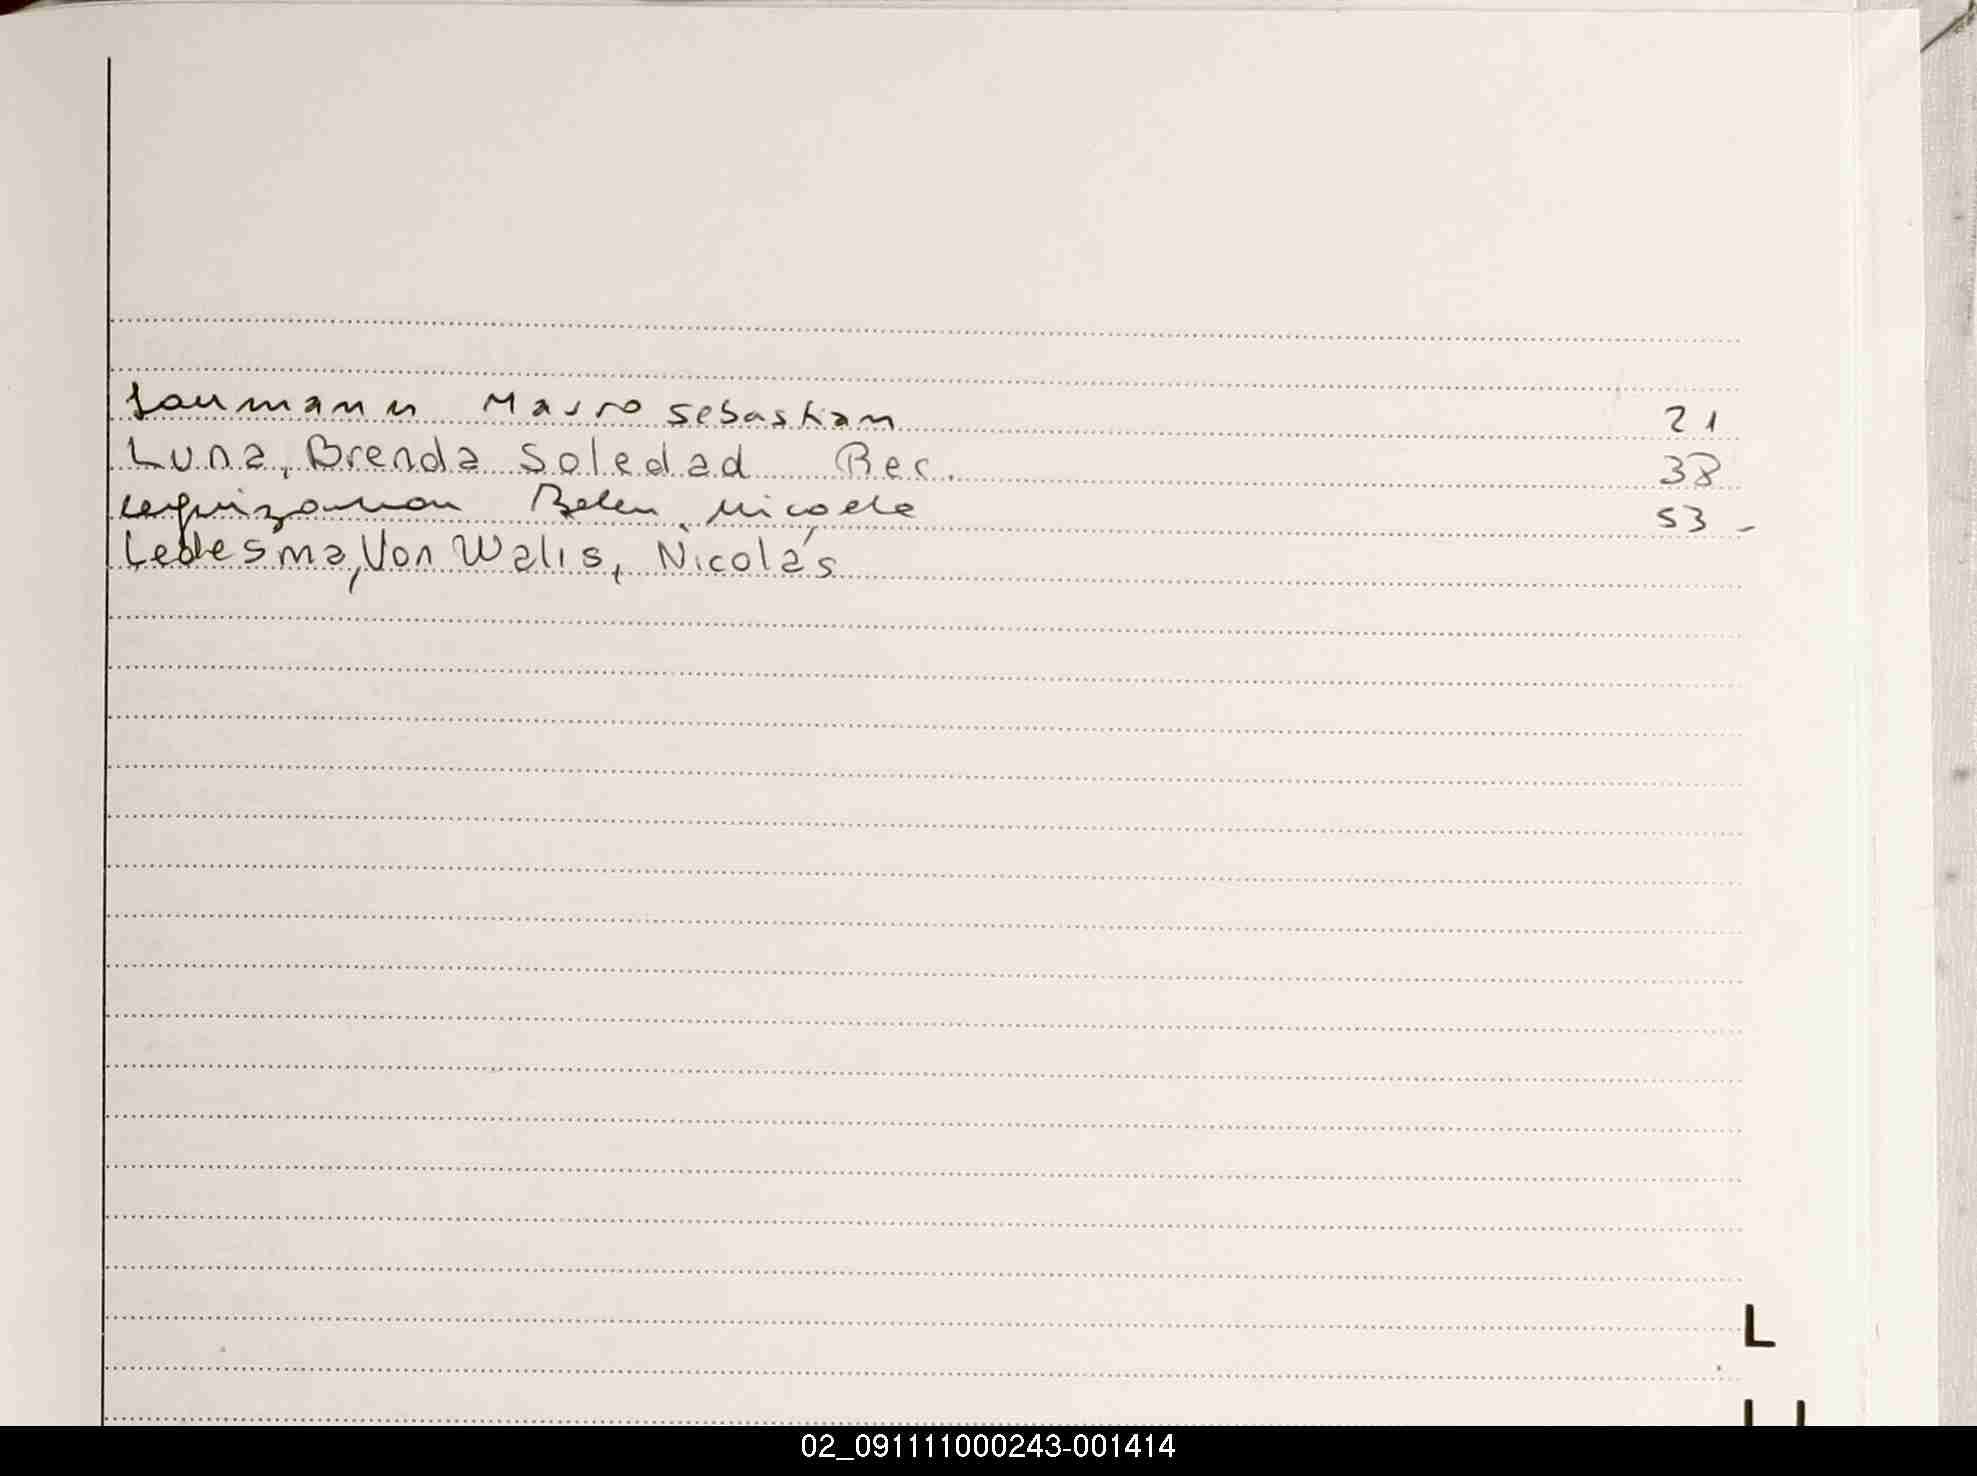 Laumann Mauro Sebastian 21
Luna, Brenda Soledad Rec. 38
Leguizamon Belen Micaela 53 -
Ledesma, Von Walis, Nicolás
L
02_091111000243-001414